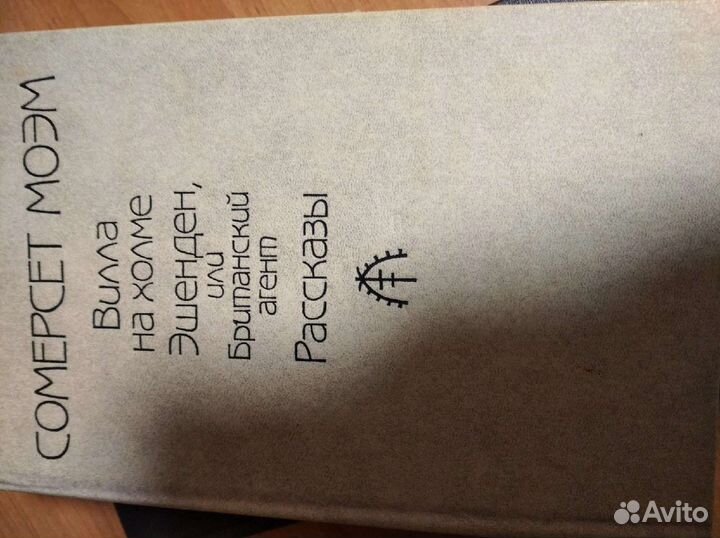 СОМЕРСЕТ МОЭМ
Вилла
на холме
Эшенден,
или
Британский
агент
Рассказы
Avito